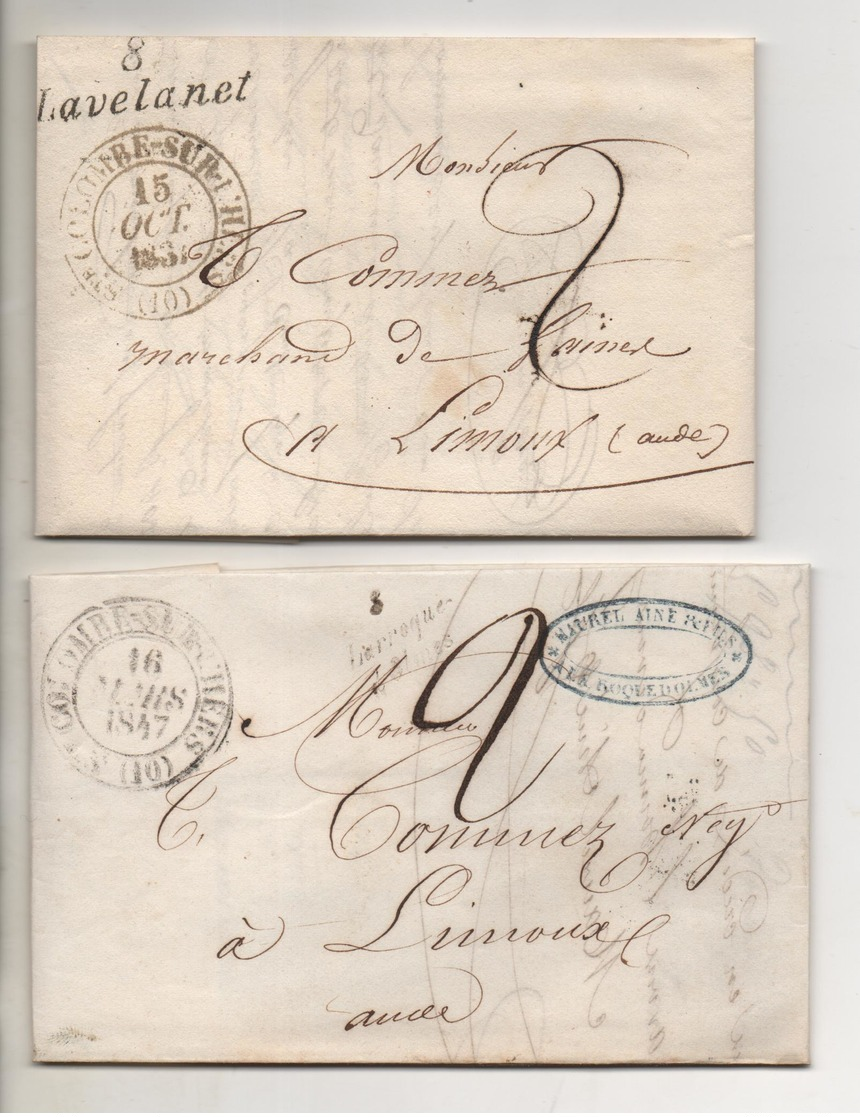 8
Lavelanet
STE COLOMBE-SUR-L'HERS (01)
15
OCT.
Monsieur
2
T. Commez
marchand de laines
A Limoux (aude)
STE COLOMBE-SUR-L'HERS (01)
16
MARS
1847
8
Larroque
2
MAUREL AINÉ & FILS
A LA ROQUE D'OLMES
Monsieur
T. Commez Neg
à Limoux
aude